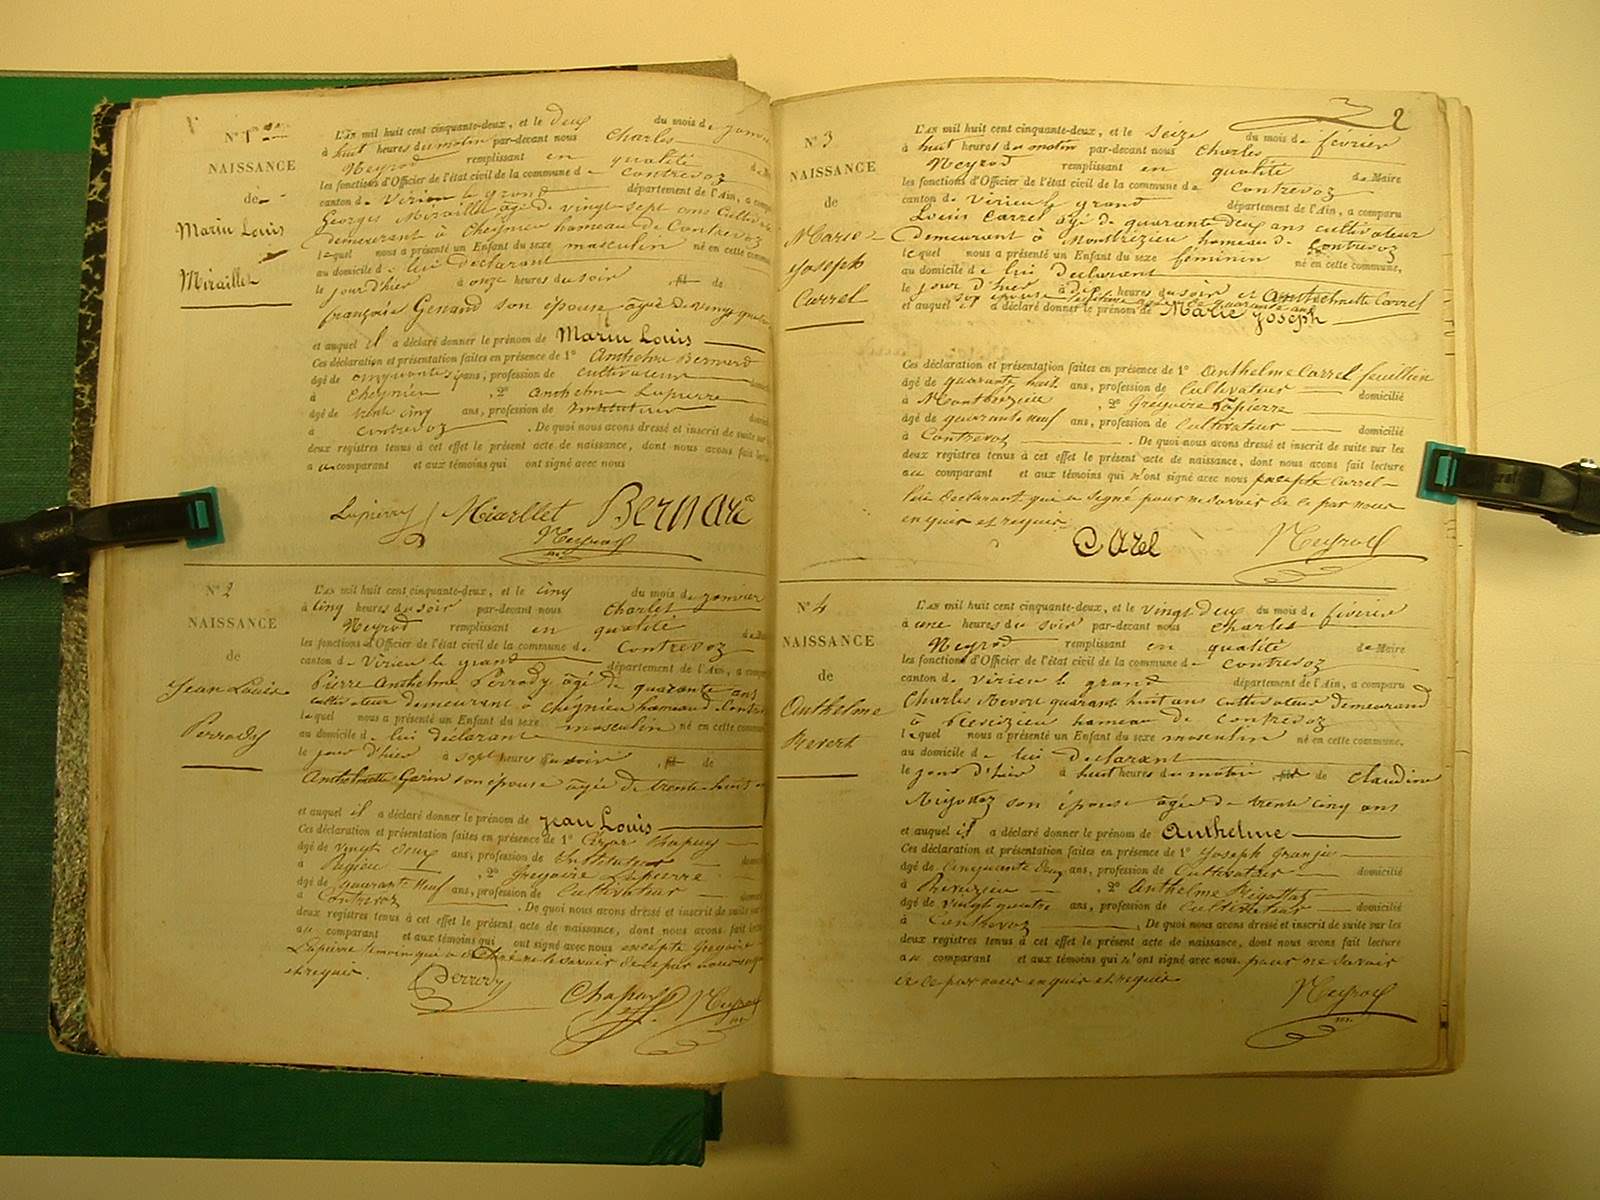 N° 1er
NAISSANCE
de
Marin Louis
Miraillet
L'an mil huit cent cinquante-deux, et le deux du mois de janvier
à huit heures du matin par-devant nous Charles
Neyrod remplissant en qualité
les fonctions d'Officier de l'état civil de la commune de Contrevoz
canton de Virieu le grand département de l'Ain, a
Georges Miraillet agé de vingt sept ans
demeurant à Cheignieu hameau de Contrevoz
lequel nous a présenté un Enfant du sexe masculin né en cette commune
au domicile de lui déclarant
le jour d'hier à onze heures du soir de
françoise Genand son épouse agée de vingt
et auquel il a déclaré donner le prénom de Marin Louis
Ces déclaration et présentation faites en présence de 1° Anthelme Bernard
âgé de ans, profession de cultivateur
à Cheignieu , 2° Anthelme Lapierre
âgé de trente cinq ans, profession de instituteur
à Contrevoz . De quoi nous avons dressé et inscrit de suite sur les
deux registres tenus à cet effet le présent acte de naissance, dont nous avons fait lecture
au comparant et aux témoins qui ont signé avec nous
Lapierre Miraillet Bernard
Neyrod
N° 2
NAISSANCE
de
Jean Louis
Perrody
L'an mil huit cent cinquante-deux, et le cinq du mois de janvier
à cinq heures du soir par-devant nous Charles
Neyrod remplissant en qualité
les fonctions d'Officier de l'état civil de la commune de Contrevoz
canton de Virieu le grand département de l'Ain, a
Pierre Anthelme Perrody agé de quarante ans
cultivateur demeurant à Cheignieu hameau de
lequel nous a présenté un Enfant du sexe masculin né en cette commune
au domicile de lui déclarant
le jour d'hier à sept heures du soir de
Anthelmette Garin son épouse agée de trente huit
et auquel il a déclaré donner le prénom de Jean Louis
Ces déclaration et présentation faites en présence de 1° Chapuy
âgé de vingt deux ans, profession de Instituteur
à Pugieu , 2° Grégoire Lapierre
âgé de quarante neuf ans, profession de Cultivateur
à Contrevoz . De quoi nous avons dressé et inscrit de suite sur
deux registres tenus à cet effet le présent acte de naissance, dont nous avons fait
au comparant et aux témoins qui ont signé avec nous excepté Grégoire
Lapierre temoin qui a déclaré ne le savoir de ce par nous
et requis.
Perrody
Chapuy Neyrod
2
N° 3
NAISSANCE
de
Marie
Joseph
Carrel
L'an mil huit cent cinquante-deux, et le seize du mois de février
à huit heures du matin par-devant nous Charles
Neyrod remplissant en qualité de Maire
les fonctions d'Officier de l'état civil de la commune de Contrevoz
canton de Virieu le grand département de l'Ain, a comparu
Louis Carrel agé de quarante deux ans cultivateur
demeurant à Montbrezieu hameau de Contrevoz
lequel nous a présenté un Enfant du sexe féminin né en cette commune,
au domicile de lui déclarant
le jour d'hier à heures du soir et Anthelmette Carrel
son épouse légitime agée de quarante ans
et auquel il a déclaré donner le prénom de Marie Joseph
Ces déclaration et présentation faites en présence de 1° Anthelme Carrel feuillien
âgé de quarante huit ans, profession de Cultivateur domicilié
à Montbrezieu , 2° Grégoire Lapierre
âgé de quarante neuf ans, profession de Cultivateur domicilié
à Contrevoz . De quoi nous avons dressé et inscrit de suite sur les
deux registres tenus à cet effet le présent acte de naissance, dont nous avons fait lecture
au comparant et aux témoins qui n'ont signé avec nous excepté Carrel
déclarant qui a signé pour ne savoir de ce par nous
enquis et requis
Carel Neyrod
N° 4
NAISSANCE
de
Anthelme
Revert
L'an mil huit cent cinquante-deux, et le vingt deux du mois de février
à une heures du soir par-devant nous Charles
Neyrod remplissant en qualité de Maire
les fonctions d'Officier de l'état civil de la commune de Contrevoz
canton de Virieu le grand département de l'Ain, a comparu
Charles quarante huit ans cultivateur demeurant
à hameau de Contrevoz
lequel nous a présenté un Enfant du sexe masculin né en cette commune.
au domicile de lui déclarant
le jour d'hier à huit heures du matin de Claudine
Rigottaz son épouse agée de trente cinq ans
et auquel il a déclaré donner le prénom de Anthelme
Ces déclaration et présentation faites en présence de 1° Joseph
âgé de cinquante deux ans, profession de Cultivateur domicilié
à , 2° Anthelme Rigottaz
âgé de vingt quatre ans, profession de Cultivateur domicilié
à Contrevoz . De quoi nous avons dressé et inscrit de suite sur les
deux registres tenus à cet effet le présent acte de naissance, dont nous avons fait lecture
au comparant et aux témoins qui n'ont signé avec nous pour ne savoir
de ce par nous enquis et requis
Neyrod